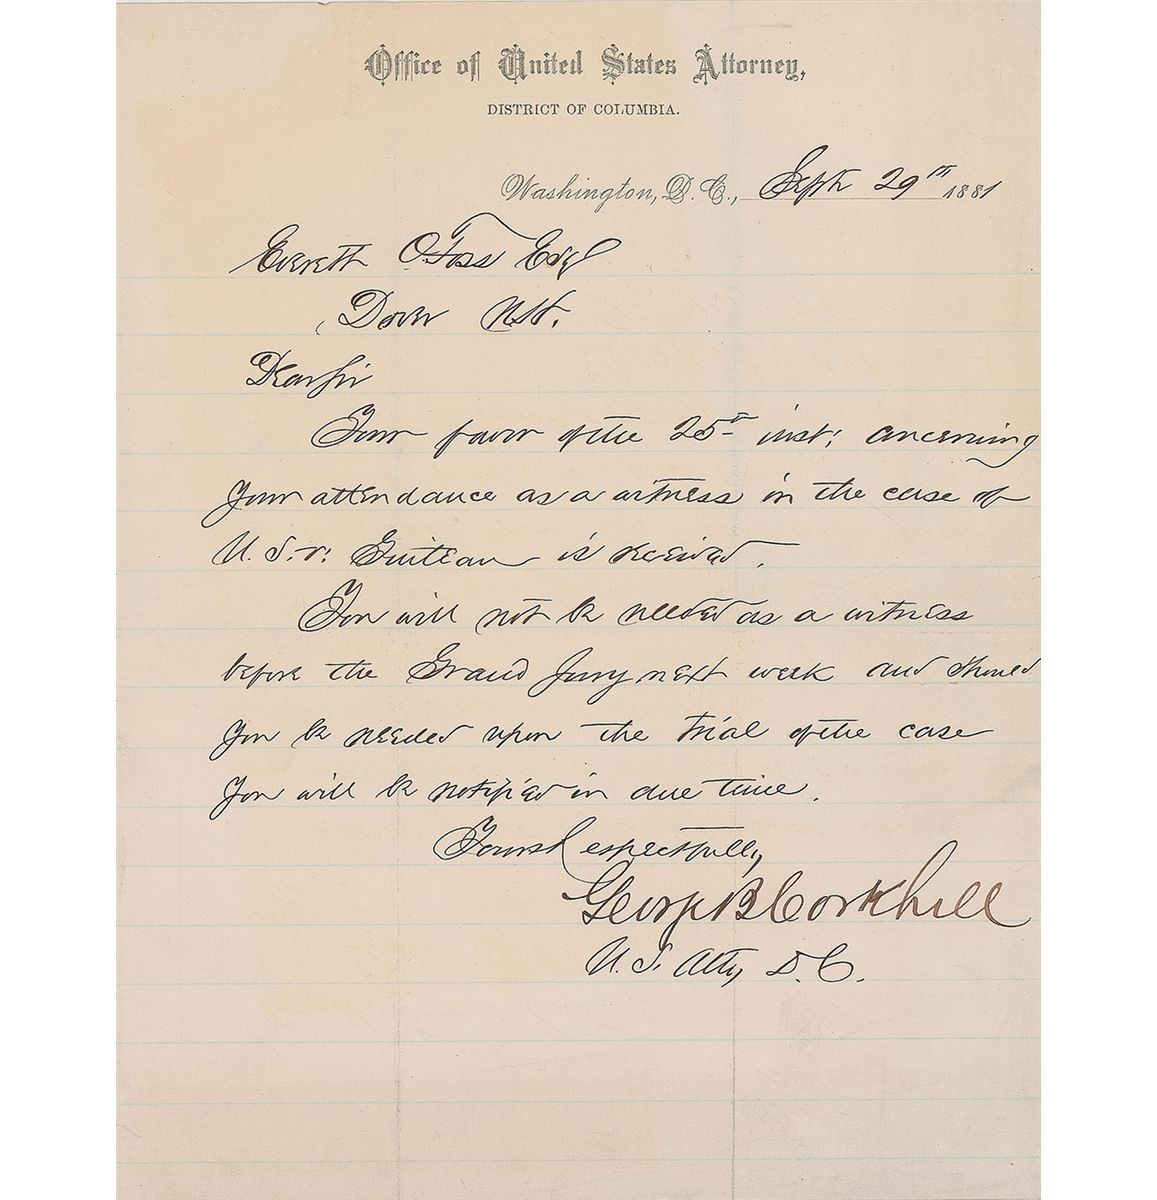 Office of United States Attorney,
DISTRICT OF COLUMBIA.
Washington, D.C., Sept 29th 1881
Everett O. Foss Esq
Dover N.H.
Dear Sir
Your favor of the 25th inst; concerning
your attendance as a witness in the case of
U.S. v. Guiteau is received.
You will not be needed as a witness
before the Grand Jury next week and should
you be needed upon the trial of the case
you will be notified in due time.
Yours Respectfully,
George B Corkhill
U.S. Atty, D.C.